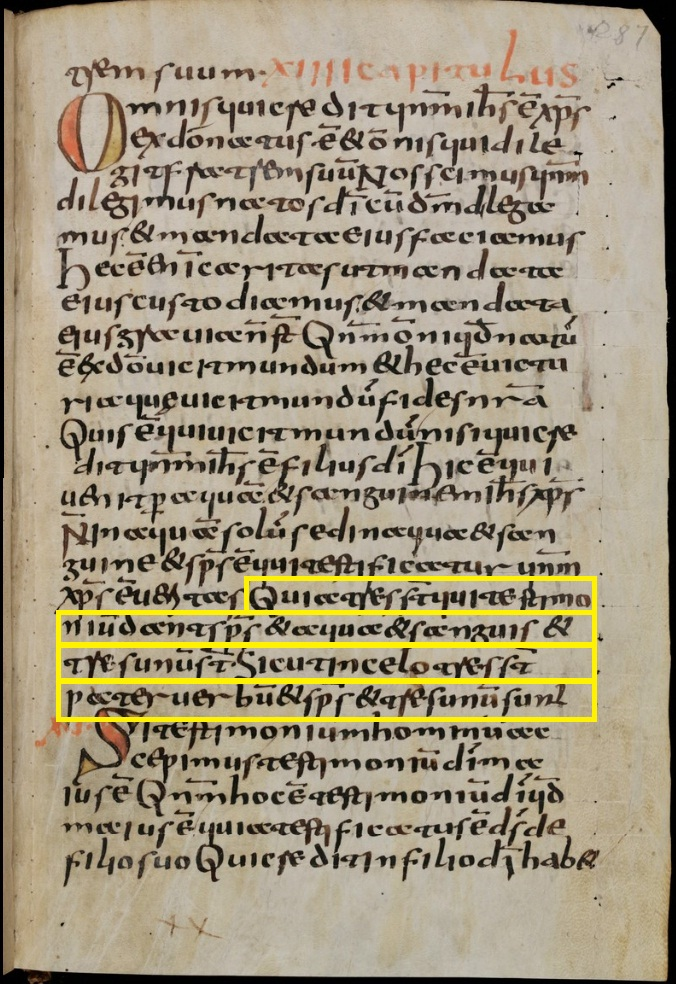 tremsuum XIIII capitulus
Omnisquicreditqnm̄ih̄sēxp̄s
exdōnatusē&ōnisquidile
gitfratremsuū Nosscimusqnm̄
diligimusnatosdīcūdn̄mdilega
mus&mandataeiusfaciamus
Hecēnīcaritasutmandata
eiuscustodiamus&mandata
eiusgravianōnst̄ Qnm̄ōniqd̄natū
ēexdōvicitmundum&hecēvictu
riaquęvicitmundūfidesnrā
Quisēquivicitmundūnisiquicre
ditqnm̄ih̄sēfiliusdī Hicēqui
venitpaquā&sanguinemih̄sxp̄s
Ñinaquāsolūsedinaqua&san
guine&sp̄sēquitestificaturqnm̄
xp̄sēveritas Quiatresst̄quitestimo
niūdantsp̄s&aqua&sanguis&
tresunūst̄ Sicutincelotressт̄
paterverbū&sp̄s&tresunūsunt
Sitestimoniumhominūac
cepimustestimoniūdīma
iusē Qnm̄hocētestimoniūdīqd̄
maiusēquiatestificatusēdsde
filiosuo Quicreditinfiliodīhab&